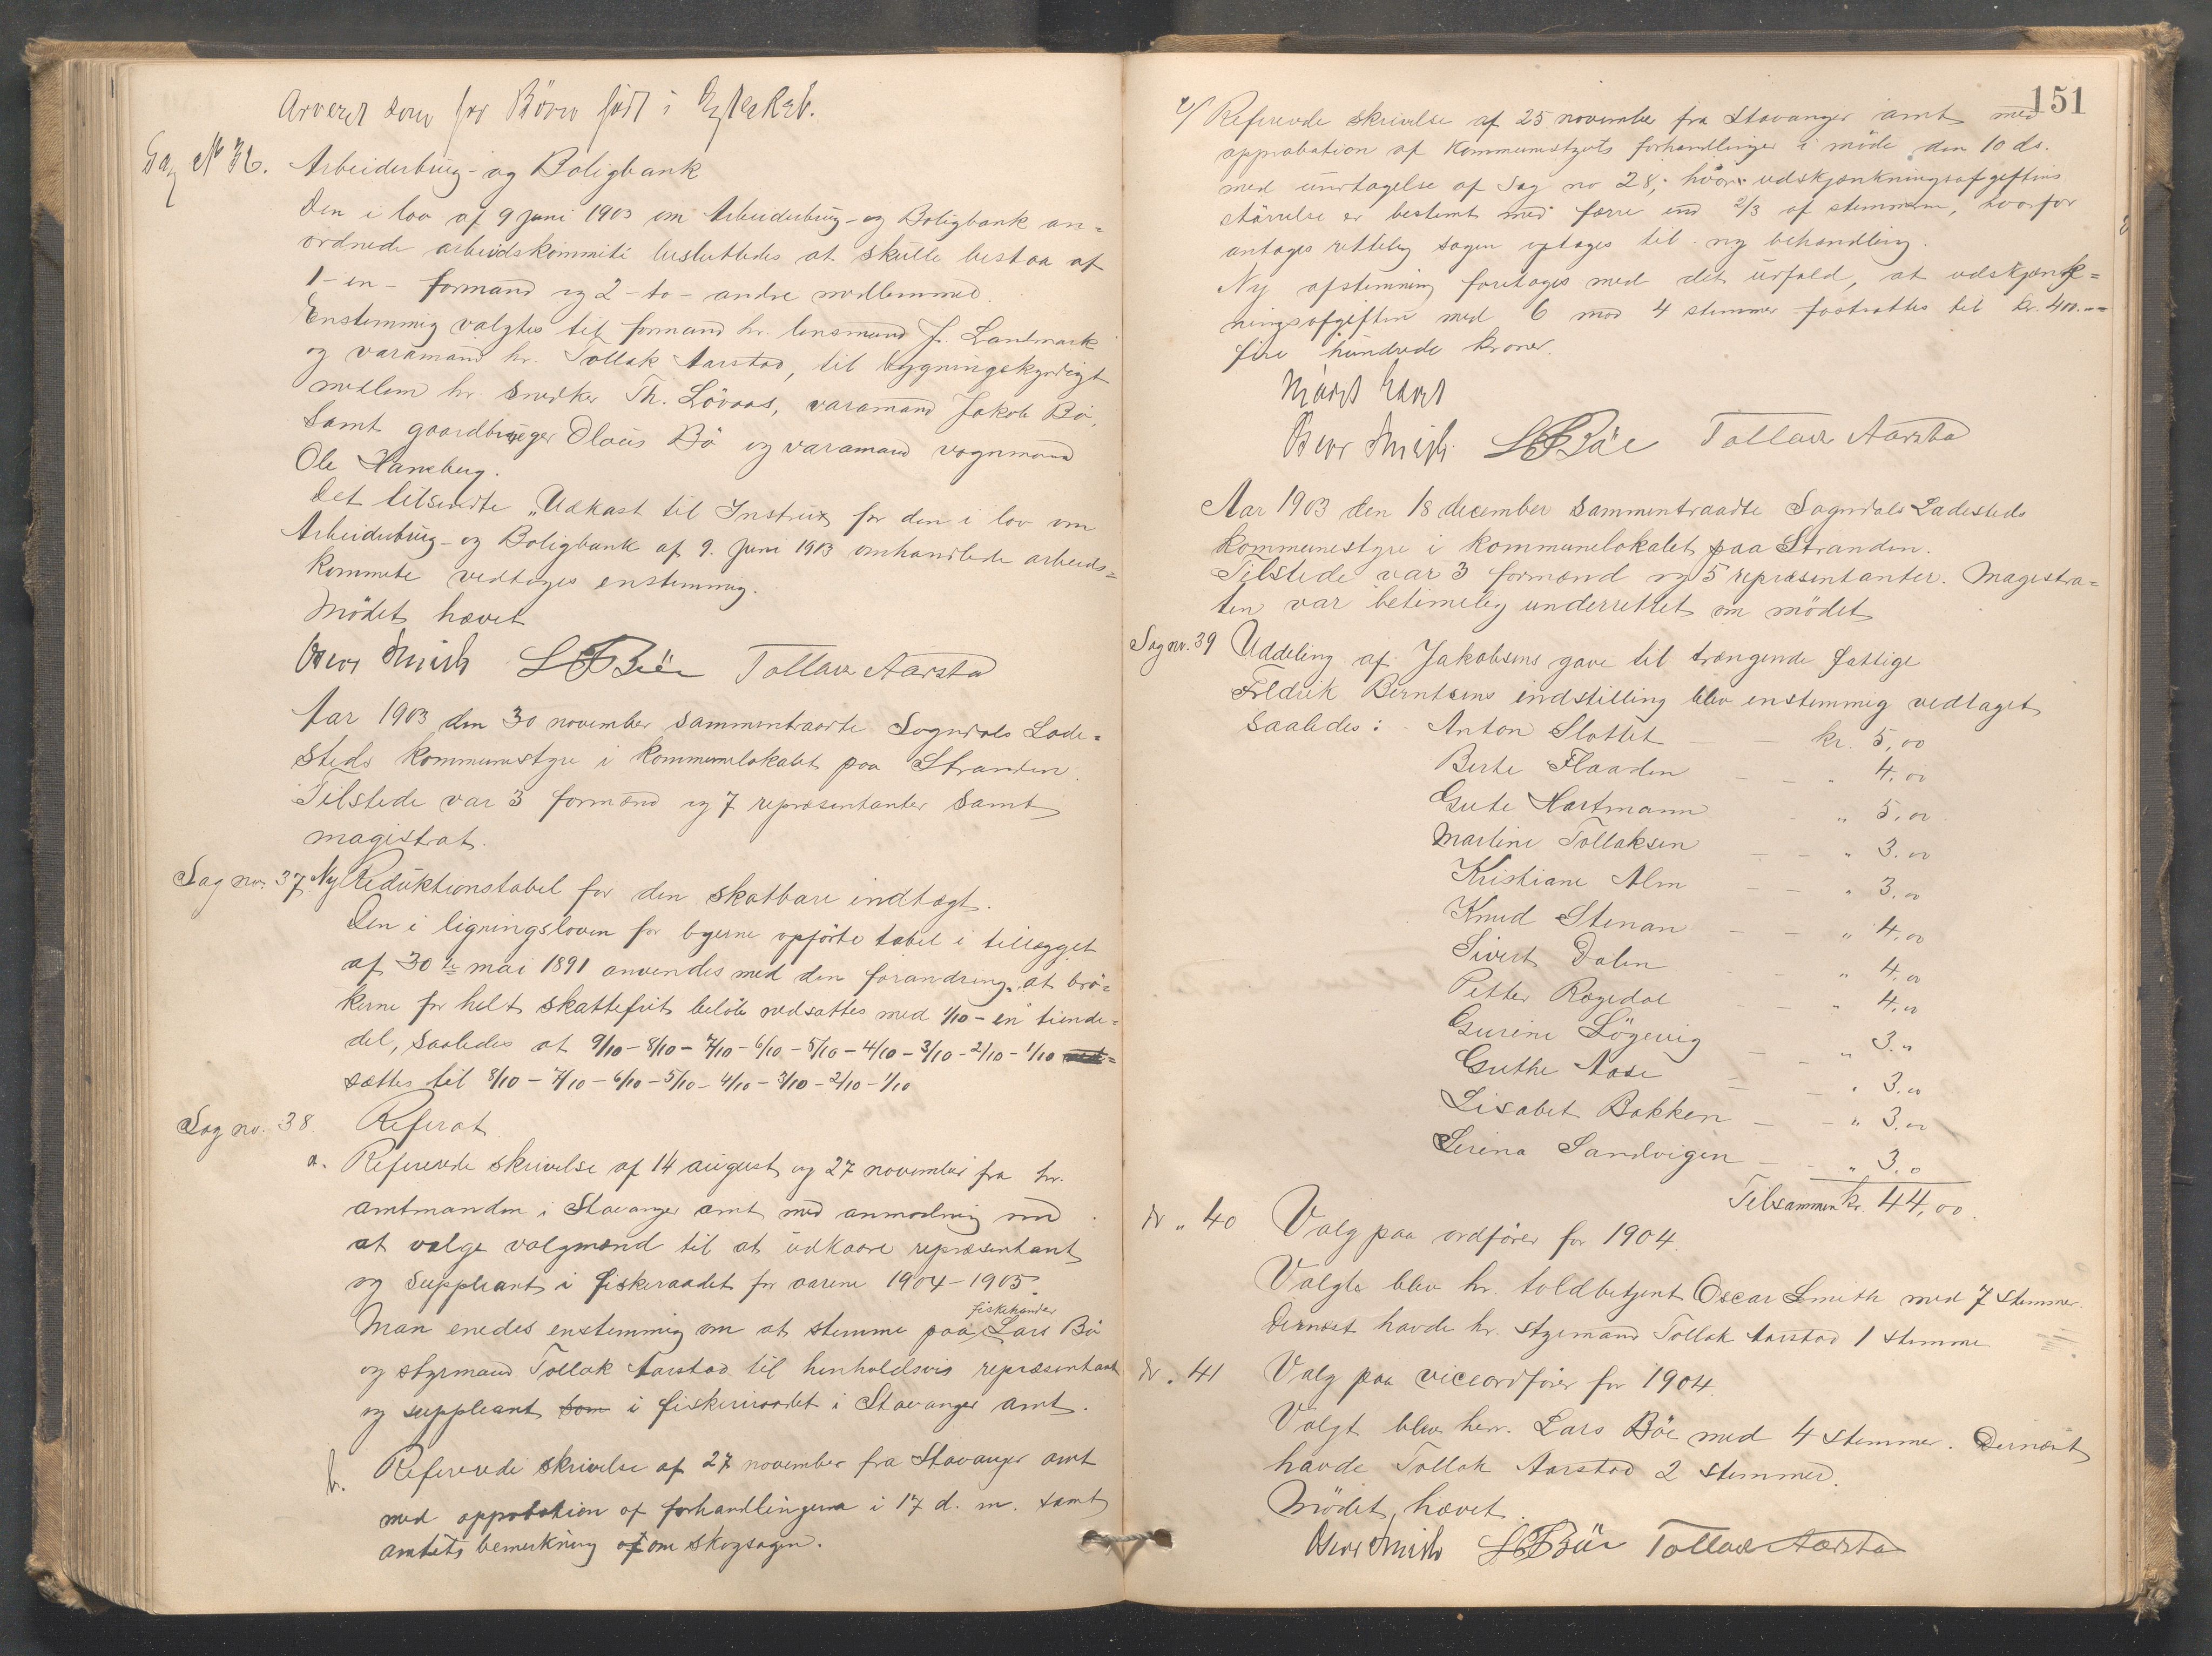 Arveret som for Börn födt i Egteskab.
Sag No 36. Arbeiderbrug- og Boligbank
Den i lov af 9 juni 1903 om Arbeiderbrug- og Boligbank an-
ordnede arbeidskommité besluttedes at skulle bestaa af
1 - en - formand og 2 - to - andre medlemmer.
Enstemmig valgtes til formand hr. lensmand J. Landmark
og varamand hr. Tollak Aarstad, til bygningskyndigt
medlem hr. snedker Th. Lövaas, varamand Jakob Bö,
samt gaardbruger Olaus Bö og varamand vognmand
Ole Haneberg.
Det tilsendte „Udkast til Instrux for den i lov om
Arbeiderbrug- og Boligbank af 9. juni 1903 omhandlede arbeids-
kommite vedtoges enstemmig.
Mödet hævet
Oscar Smith L Böe Tollak Aarstad
Aar 1903 den 30 november sammentraadte Sogndals Lade-
steds kommunestyre i kommunelokalet paa Stranden.
Tilstede var 3 formænd og 7 repræsentanter samt
magistrat.
Sag no. 37. Ny Reduktionstabel for den skatbare indtægt.
Den i ligningsloven for byerne opförte tabel i tillægget
af 30 te mai 1891 anvendes med den forandring, at brö-
kerne for helt skattefrit belöb nedsættes med 1/10 - en tiende-
del, saaledes at 9/10 - 8/10 - 7/10 - 6/10 - 5/10 - 4/10 - 3/10 - 2/10 - 1/10 ned-
sættes til 8/10 - 7/10 - 6/10 - 5/10 - 4/10 - 3/10 - 2/10 - 1/10
Sag no. 38. Referat
a. Refererede skrivelse af 14 august og 27 november fra hr.
amtmanden i Stavanger amt med anmodning om
at vælge valgmænd til at udkaare repræsentant
og suppleant i fiskeraadet for aarene 1904-1905.
fiskehandler
Man enedes enstemmig om at stemme paa Lars Bö
og styrmand Tollak Aarstad til henholdsvis repræsentant
og suppleant som i fiskeriraadet i Stavanger amt.
b. Refererede skrivelse af 27 november fra Stavanger amt
med approbation af forhandlingerne i 17 d. m. samt
amtets bemerkning af om skogsagen.
151
c/ Refererede skrivelse af 25 november fra Stavanger amt med
approbation af Kommunestyrets forhandlinger i möde den 10 ds.
med undtagelse af Sag no 28, hvor udskjænkningsafgiftens
störrelse er bestemt med færre end 2/3 af stemmerne, hvorfor
antages rettelig sagen optages til ny behandling.
Ny afstemning foretoges med det udfald, at udskjænk-
ningsafgiften med 6 mod 4 stemmer fastsattes til kr. 400.--
fire hundrede kroner.
Mödet hævet
Oscar Smith L Böe Tollak Aarstad
Aar 1903 den 18 december sammentraadte Sogndals Ladesteds
kommunestyre i kommunelokalet paa Stranden.
Tilstede var 3 formænd og 5 repræsentanter. Magistra-
ten var betimelig underrettet om mödet
Sag nr. 39 Uddeling af Jakobsens gave til trængende fattige
Fredrik Berntsens indstilling blev enstemmig vedtaget
saaledes: Anton Slottet - - kr. 5,00
Berte Flaaden - - „ 4,00
Gute Hartmann - „ 5,00
Martine Tollaksen - - „ 3.00
Kristiane Alm - - „ 3,00
Knud Stenan - - „ 4,00
Sivert Dalen - „ 4,00
Petter Rægedal - - „ 4,00
Gurine Lögevig - - „ 3."
Guthe Aase - - „ 3.00
Lisabet Bakken - - „ 3.00
Serina Sandvigen - - „ 3.0
Tilsammen kr. 44,00.
Nr „ 40 Valg paa ordförer for 1904.
Valgte blev hr. toldbetjent Oscar Smith med 7 stemmer.
Dernæst havde hr. styrmand Tollak Aarstad 1 stemme
Nr. 41 Valg paa viceordförer for 1904.
Valgt blev herr. Lars Böe med 4 stemmer. Dernæst
havde Tollak Aarstad 2 stemmer.
Mödet hævet.
Oscar Smith L Böe Tollak Aarstad